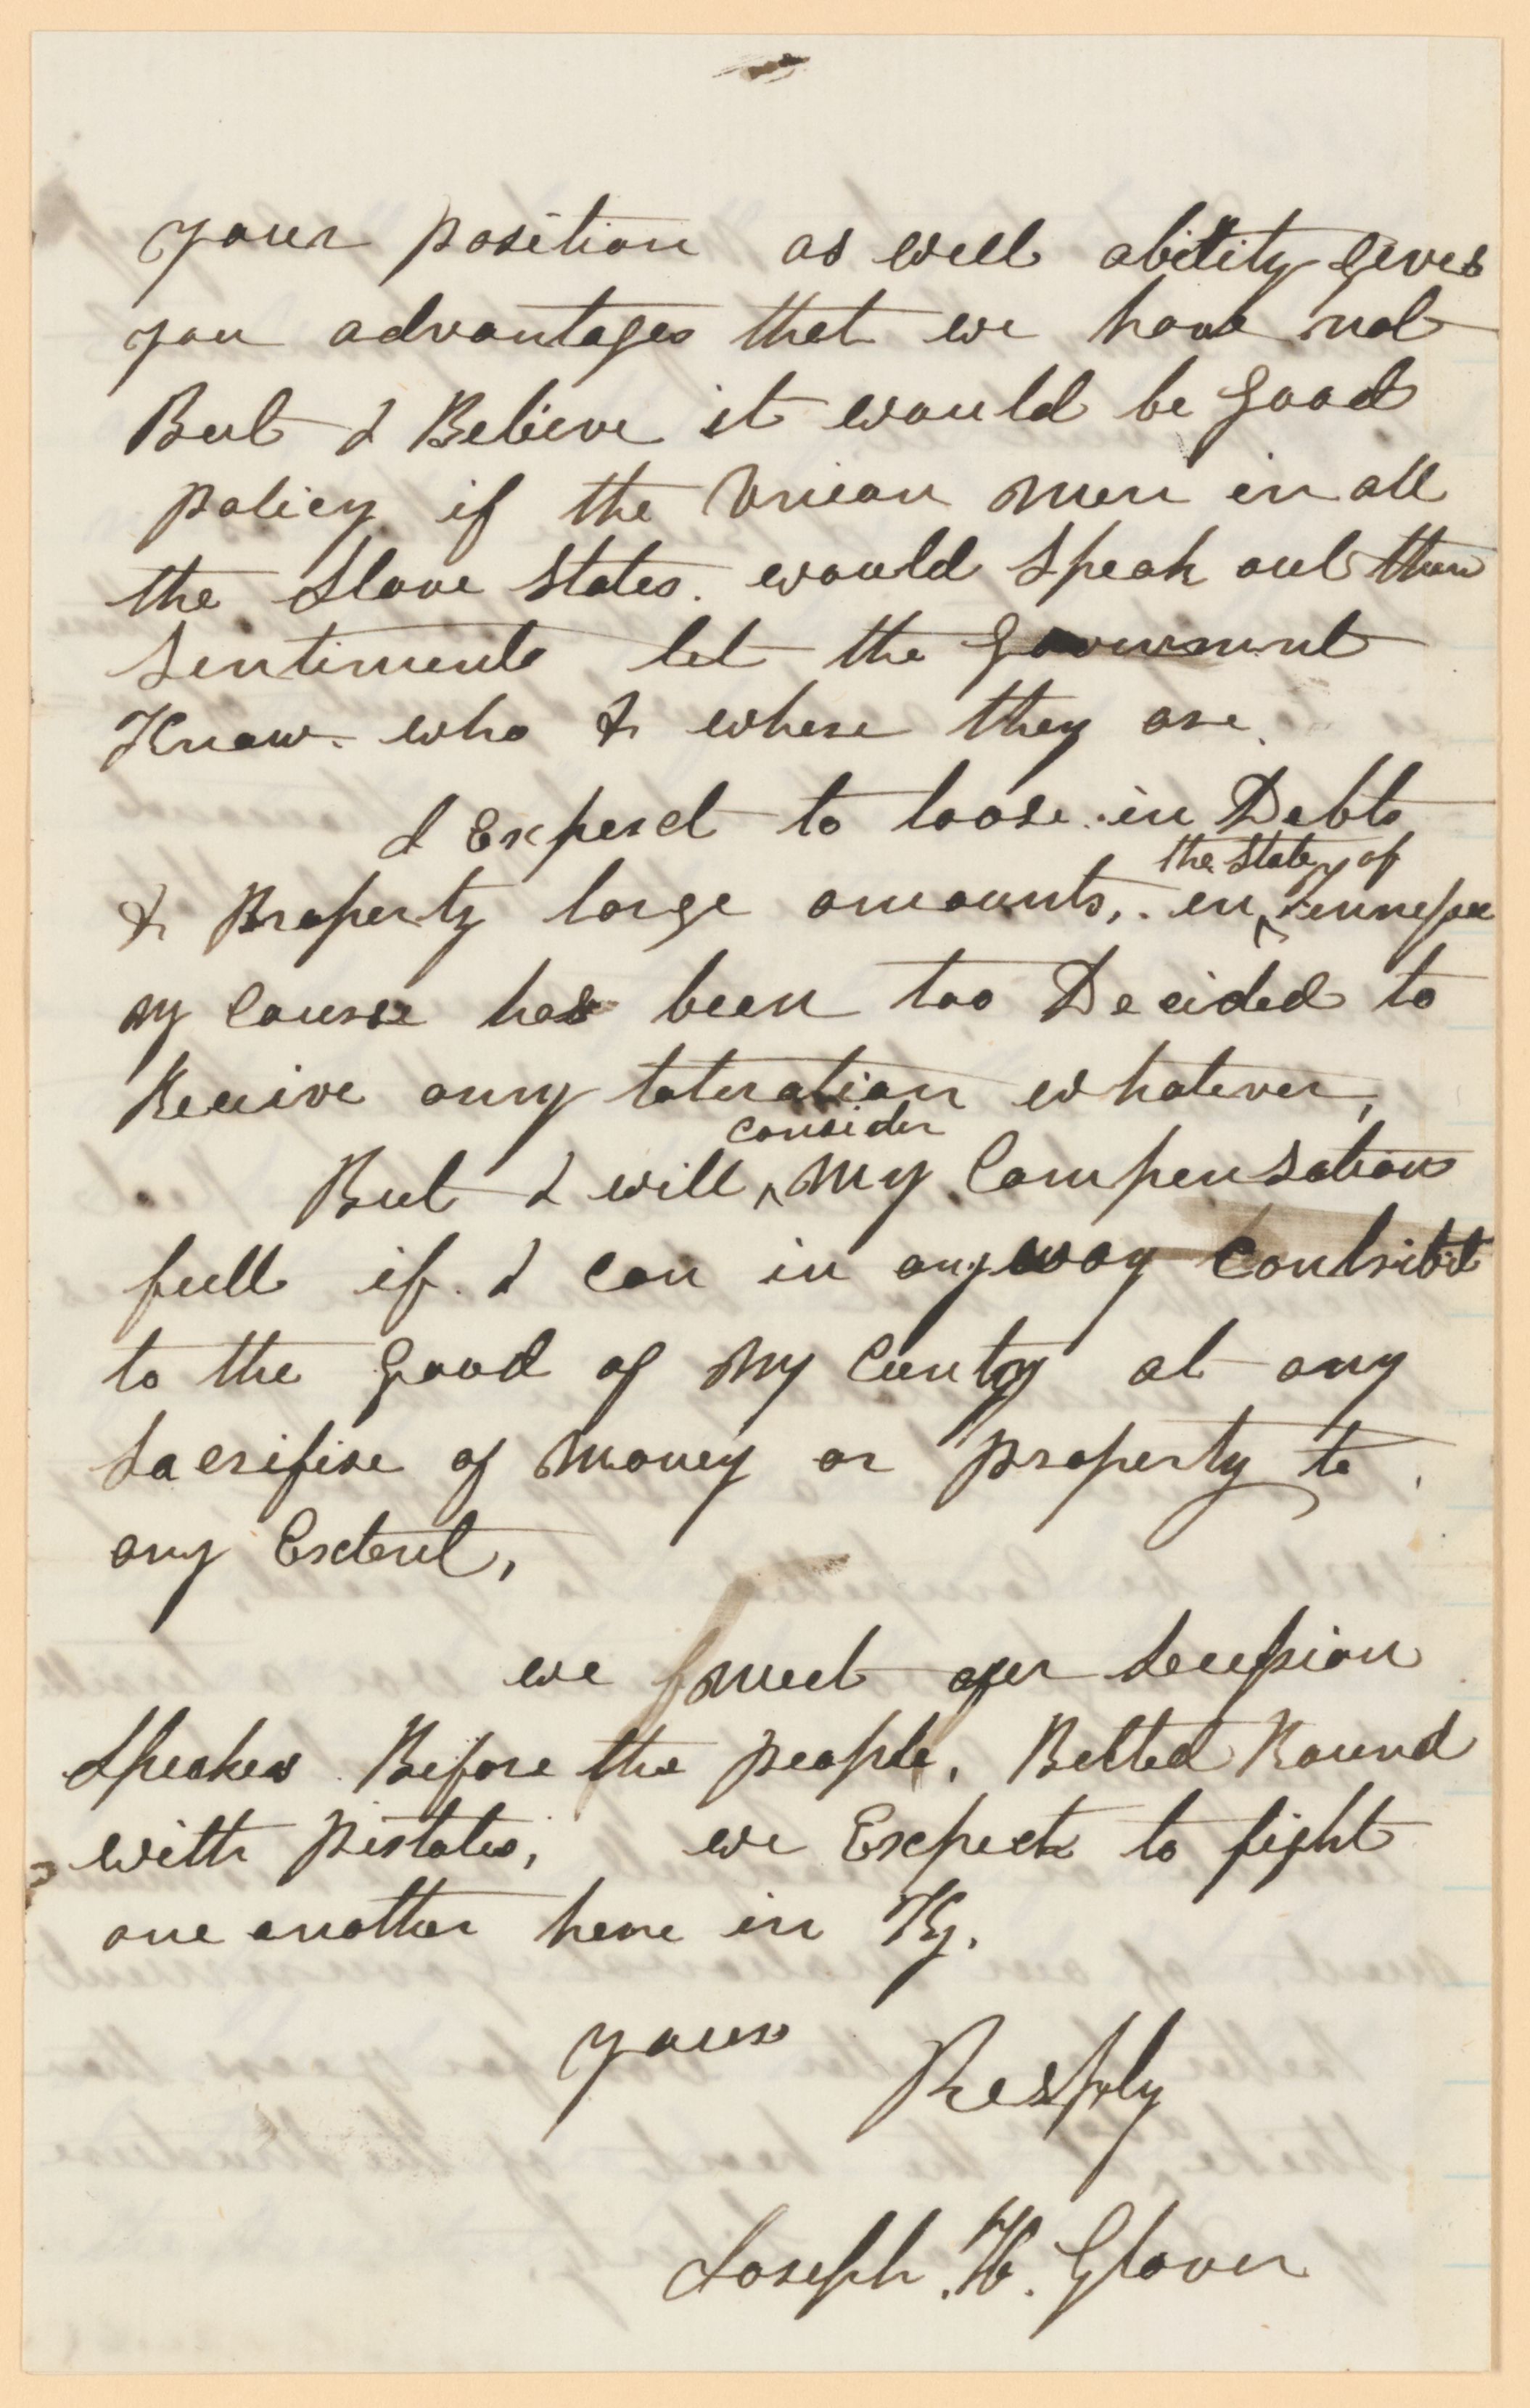 your position as well ability gives
you advantages that we have not
But I Believe it would be good
policy if the Union Men in all
the Slave States. would Speak out their
Sentiments let the Goverment
Know. who & where they are.
I Expect to loose. in Debts
the State of
& Property large amounts, in ^ Tennessee
my Course has been too Decided to
Receive any toleration whatever,
consider
But I will ^ My Compensation
full if I can in anyway Contribut
to the good of My Cuntry at any
Sacrifise of Money or property to
any Extent,
we meet our Secession
Speakes Before the people. Belted Round
with Pistoles, we Expect to fight
one another here in Ky.
yours Resply
Joseph. H. Glover